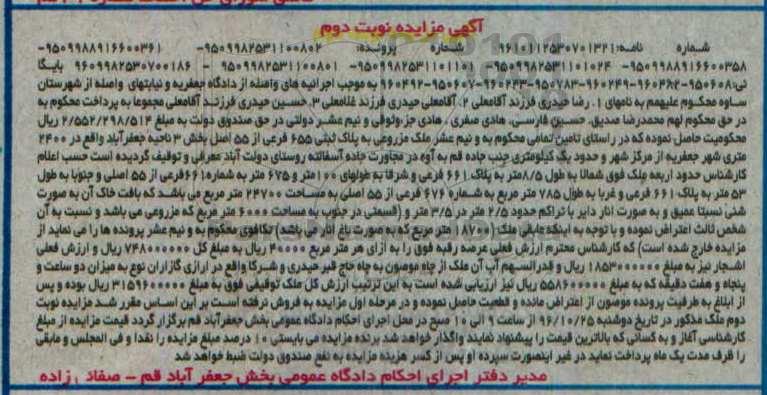 آگهی مزایده نوبت دوم
شماره نامه: ۹۶۱۰۱۱۲۵۳۰۷۰۱۳۲۱ شماره پرونده: ۹۵۰۹۹۸۲۵۳۱۱۰۰۸۰۲- ۹۵۰۹۹۸۸۹۱۶۶۰۰۳۶۱-
۹۵۰۹۹۸۸۹۱۶۶۰۰۳۵۸- ۹۵۰۹۹۸۲۵۳۱۱۰۱۰۲۴- ۹۵۰۹۹۸۲۵۳۱۱۰۱۱۰۱- ۹۵۰۹۹۸۲۵۳۱۱۰۰۸۰۱ - ۹۶۰۹۹۸۲۵۳۰۷۰۰۱۸۶ بایگا
نی: ۹۵۰۶۰۸-۹۶۰۴۶۲-۹۶۰۲۴۹-۹۵۰۷۸۳-۹۶۰۲۴۳-۹۵۰۶۰۷-۹۶۰۴۹۲ به موجب اجرائیه های واصله از دادگاه جعفریه و نیابتهای واصله از شهرستان
ساوه محکوم علیهمم به نامهای ۱. رضا حیدری فرزند آقامعلی ۲. آقامعلی حیدری فرزند غلامعلی ۳. حسین حیدری فرزند آقامعلی مجموعا به پرداخت محکوم به
در حق محکوم لهم محمدرضا صدیق، حسین فارسی، هادی صفری، هادی جز،وثوقی و نیم عشر دولتی در حق صندوق دولت به مبلغ ۲/۵۵۲/۲۹۸/۵۱۴ ریال
محکومیت حاصل نموده که در راستای تامین تمامی محکوم به و نیم عشر ملک مزروعی به پلاک ثبتی ۶۵۵ فرعی از ۵۵ اصل بخش ۳ ناحیه جعفرآباد واقع در ۲۴۰۰
متری شهر جعفریه از مرکز شهر و حدود یک کیلومتری جنب جاده قم به آوه در مجاورت جاده آسفالته روستای دولت آباد معرفی و توقیف گردیده است حسب اعلام
کارشناس حدود اربعه ملک فوق شمالا به طول ۸/۵متر به پلاک ۶۶۱ فرعی و شرقا به طولهای ۱۰۰متر و ۶۷۵ متر به شماره ۶۶۱فرعی از ۵۵ اصلی و جنوبا به طول
۵۳ متر به پلاک ۶۶۱ فرعی و غربا به طول ۷۸۵ متر مربع به شماره ۶۷۶ فرعی از ۵۵ اصلی به مساحت ۲۴۷۰۰ متر مربع می باشد که بافت خاک آن به صورت
شنی نسبتا عمیق و به صورت انار دایر با تراکم حدود ۲/۵ متر در ۳/۵ متر و (قسمتی در جنوب به مساحت ۶۰۰۰ متر مربع که مزروعی می باشد و نسبت به آن
شخص ثالث اعتراض نموده و با توجه به اینکه مابقی ملک (۱۸۷۰۰ متر مربع که به صورت باغ انار می باشد) تکافوی محکوم به و نیم عشر پرونده ها را می نماید از
مزایده خارج شده است) که کارشناس محترم ارزش فعلی عرصه رقبه فوق را به ازای هر متر مربع ۴۰۰۰۰ ریال به مبلغ کل ۷۴۸۰۰۰۰۰۰ ریال و ارزش فعلی
اشجار نیز به مبلغ ۱۸۵۳۰۰۰۰۰۰ ریال و قدرالسهم آب آن ملک از چاه موصون به چاه حاج قیر حیدری و شرکا واقع در ارازی گازاران نوع به میزان دو ساعت و
پنجاه و هفت دقیقه که به مبلغ ۵۵۸۶۰۰۰۰۰ ریال نیز ارزیابی شده است به این ترتیب ارزش کل ملک توقیفی فوق به مبلغ ۳۱۵۹۶۰۰۰۰۰ ریال بوده و پس
از ابلاغ به طرفیت پرونده موصون از اعتراض مانده و قطعیت حاصل نموده و در مرحله اول مزایده به فروش نرفته است بر این اساس مقرر شد مزایده نوبت
دوم ملک مذکور در تاریخ دوشنبه ۹۶/۱۰/۲۵ از ساعت ۹ الی ۱۰ صبح در محل اجرای احکام دادگاه عمومی بخش جعفرآباد قم برگزار گردد قیمت مزایده از مبلغ
کارشناسی آغاز و به کسانی که بالاترین قیمت را پیشنهاد نمایند واگذار خواهد شد برنده مزایده می بایستی ۱۰ درصد مبلغ مزایده را نقدا و فی المجلس و مابقی
را ظرف مدت یک ماه پرداخت نماید در غیر اینصورت سپرده او پس از کسر هزینه مزایده به نفع صندوق دولت ضبط خواهد شد
مدیر دفتر اجرای احکام دادگاه عمومی بخش جعفر آباد قم – صفائی زاده